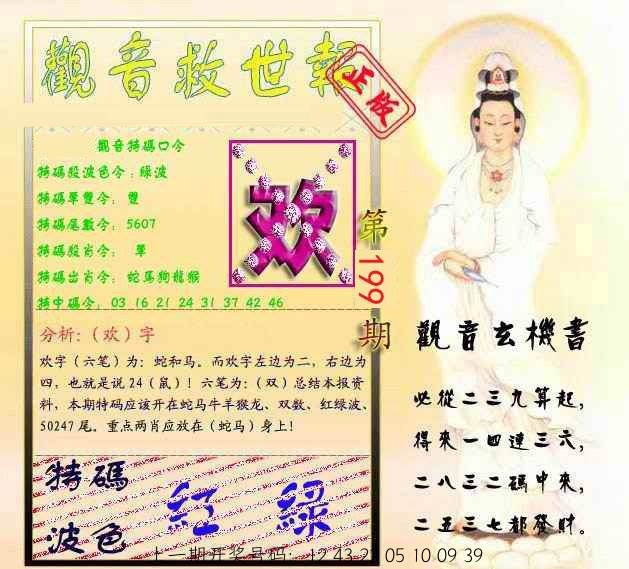 觀音救世報
正版
觀音特碼口令
特碼段波色令：綠波
特碼單雙令： 雙
特碼尾數令： 5607
特碼段肖令： 單
特碼出肖令： 蛇馬狗龍猴
特中碼令： 03 16 21 24 31 37 42 46
欢
第199期
分析:（欢）字
欢字（六笔）为：蛇和马。而欢字左边为二，右边为
四，也就是说24（鼠）！六笔为：（双）总结本报资
料，本期特码应该开在蛇马牛羊猴龙、双数、红绿波、
50247尾。重点两肖应放在（蛇马）身上！
特碼
波色
紅 綠
觀音玄機書
必從二三九算起，
得來一四連三六，
二八三二碼中來，
二五三七都發財。
十一期开奖号码： 12 43 21 05 10 09 39